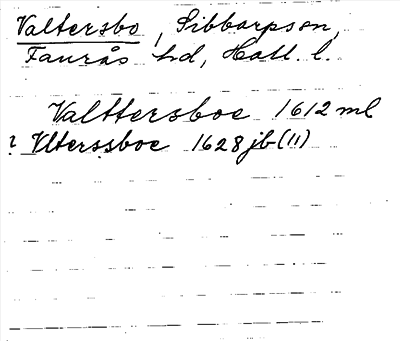 Valtersbo, Sibbarp sn,
Faurås hd, Hall. l.
Valttersboe 1612 ml
? Vlterssboe 1628 jb (11)